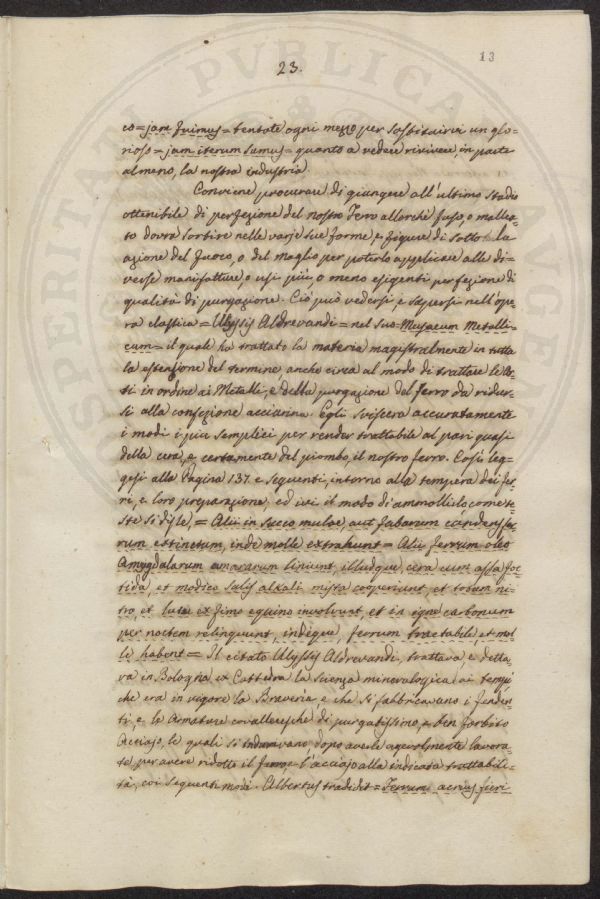 13
23.
co = jam fuimus = tentate ogni mezzo per sostituirvi un glo-
rioso = jam iterum sumus = quanto a vedere rivivere, in parte
almeno, la nostra industria.
Conviene procurare di giungere all'ultimo stadio
ottenibile di perfezione del nostro Ferro allorchè fuso, o mallea-
to dovrà sortire nelle varie sue forme, e figure di sotto la
azione del fuoco, o del maglio per poterlo applicare alle di-
verse manifatture, o usi più, o meno esigenti perfezione di
qualità di purgazione. Ciò può vedersi, e sapersi nell'ope-
ra classica = Ulyssis Aldrevandi = nel suo = Musaeum Metalli-
cum = il quale ha trattato la materia magistralmente in tutta
la estensione del termine, anche circa al modo di trattare le Ar-
ti in ordine ai Metalli, e della purgazione del Ferro da ridur-
si alla confezione acciarina. Egli sviscera accuratamente
i modi i più semplici per render trattabile al pari quasi
della cera, e certamente del piombo, il nostro ferro. Così leg-
gesi alla Pagina 137. e seguenti, intorno alla tempera dei fer-
ri, e loro preparazione ed ivi il modo di ammollirlo come te-
ste si disse, = Alii in succo mulae, aut fabarum candens fer-
rum extinctum, inde molle extrahunt = Alii ferrum oleo
Amygdalarum amararum liniunt, illudque, cera cum assa foe-
tida, et modico salis alkali mista cooperiunt, et totum ni-
tro, et luto ex fimo equino involvunt, et in igne carbonum
per noctem relinquunt, indeque, ferrum tractabile et mol-
le habent = Il citato Ulyssis Aldrevandi, trattava, e detta-
va in Bologna ex Cattedra la scienza mineralogica ai tempi
che era in vigore la Braveria, e che si fabbricavano i fenden-
ti, e le Armature cavalleresche di purgatissimo, e ben forbito
Acciajo, le quali si induravano dopo averle agevolmente lavora-
te per avere ridotto il ferro e l'acciajo alla indicata trattabili-
tà, coi seguenti modi. Albertus tradidit = Ferrum acrius fieri